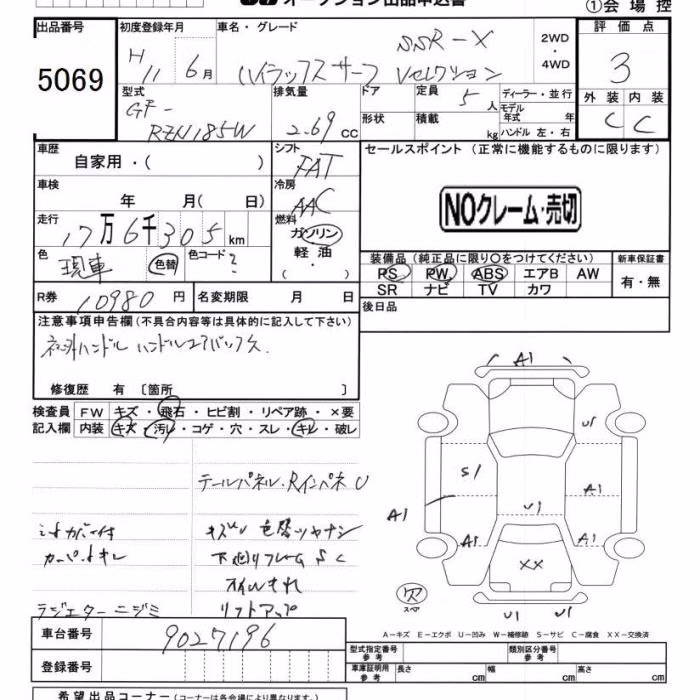 オークション出品申込書
①会場控
出品番号
5069
初度登録年月
H11 6月
車名・グレード
SSR-X
ハイラックスサーフ Vセレクション
2WD
・
4WD
評価点
3
外装 内装
C C
型式
GF-
RZN185W
排気量
2.69 cc
ドア
形状
定員 5人
積載 kg
ディーラー・並行
モデル年式 年
ハンドル 左・右
車歴
自家用・( )
シフト
FAT
車検
年 月( 日)
冷房
AAC
走行
17万6千305km
燃料
ガソリン
軽油
( ・ )
色
現車
色替
色コード ?
R券 10980円
名変期限 月 日
セールスポイント (正常に機能するものに限ります)
NOクレーム・売切
装備品 (純正品に限り〇をつけてください)
新車保証書
PS PW ABS エアB AW
SR ナビ TV カワ
有・無
後日品
注意事項申告欄(不具合内容等は具体的に記入して下さい)
社外ハンドル ハンドルエアバックス
修復歴 有 〔箇所 〕
検査員
記入欄
FW キズ・飛石・ヒビ割・リペア跡・×要
内装 キズ・汚レ・コゲ・穴・スレ・キレ・破レ
テールパネル・RインパネU
シートカバー付
キズU 色替ツヤナシ
カーペットキレ
下廻りフレームSC
オイルもれ
ラジエターニジミ
リフトアップ
A1
U1
S1
A1
U1
A1
A1
A1
XX
欠
スペア
U1
U1
A-キズ E-エクボ U-凹み W-補修跡 S-サビ C-腐食 XX-交換済
車台番号
9027196
登録番号
型式指定番号
参考
類別区分番号
参考
車庫証明用
参考
長さ cm
幅 cm
高さ cm
希望出品コーナー (コーナーは各会場により異なります。)